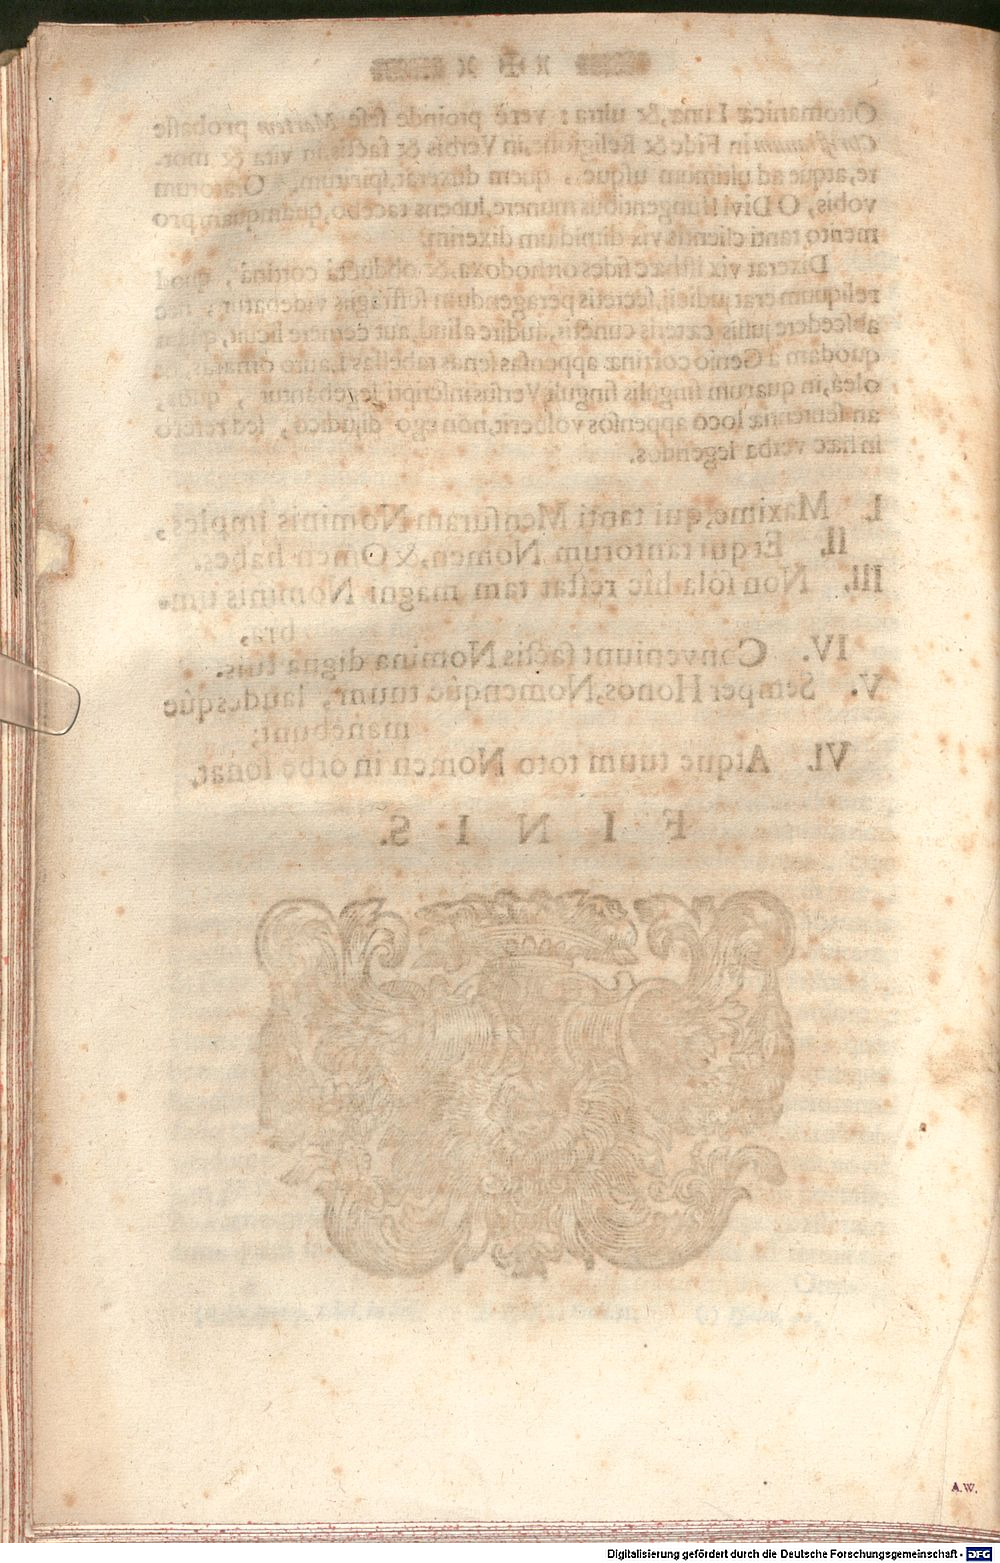 Ottomanicæ Lunæ, & ultra: verè proinde sese Martem probasse
Christianum in Fide & Religione, in Verbis & factis, in vita & mor-
te, atque ad ultimum usque, quem duxerat, spiritum. Oratorum
vobis, O Divi Hungentibus munere, lubens tacebo, quamquam pro
merito tanti clientis vix dimidium dixerim.
Dixerat vix isthæc fides orthodoxa, & obductâ cortinâ, quod
reliquum erat judicij, secretis peragendum suffragijs videbatur; nec
abscedere jussis cæteris cunctis, audire aliud, aut cernere licuit, quàm
quodam à Genio cortinæ appensas senas tabellas Lauro ornatas,
oleâ, in quarum singulis singuli Versus inscripti legebantur, quos,
an sententiæ loco appensos voluerit, non ego dijudico, sed refero
in hæc verba legendos.
I. Maxime, qui tanti Mensuram Nominis imples,
II. Et qui tantorum Nomen, & Omen habes.
III. Non sola hîc restat tam magni Nominis um-
bra,
IV. Conveniunt factis Nomina digna tuis.
V. Semper Honos, Nomenqúe tuum, laudesqúe
manebunt;
VI. Atque tuum toto Nomen in orbe sonat.
F I N I S.
A.W.
Digitalisierung gefördert durch die Deutsche Forschungsgemeinschaft - DFG